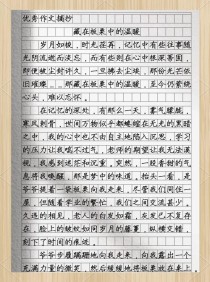 优秀作文摘抄
藏在板栗中的温暖
岁月如梭，时光荏苒，记忆中有些往事随
光阴流逝而淡忘，而有些则在心中根深蒂固，
即使被尘封许久，一旦拂去尘埃，那份光芒依
旧璀璨。那藏在板栗中的温暖，至今仍萦绕
心头，难以忘怀。
在记忆的深处，有那么一天，雾气朦胧，
寒风刺骨，世间万物似乎都蜷缩在无光的黑
暗中，我的心中也不由自主地陷入沉思，学习
的压力让我喘不过气，老师的期望让我无法漠
视，我感到迷茫和沉重。突然，一段香甜的气
息将我唤醒，那是梦中的味道，抬头一看，是
爷爷提着一袋板栗向我走来，尽管我们同住一
屋，但随着学业的繁忙，我们之间交流甚少，
久违的相见，老人的白发如霜，灰发已不复存
在，脸上的皱纹如同岁月的藤蔓，纵横交错，
刻下了时间的痕迹。
爷爷步履蹒跚地向我走来，向我露出一个
充满力量的微笑，然后缓缓地将板栗放在桌上